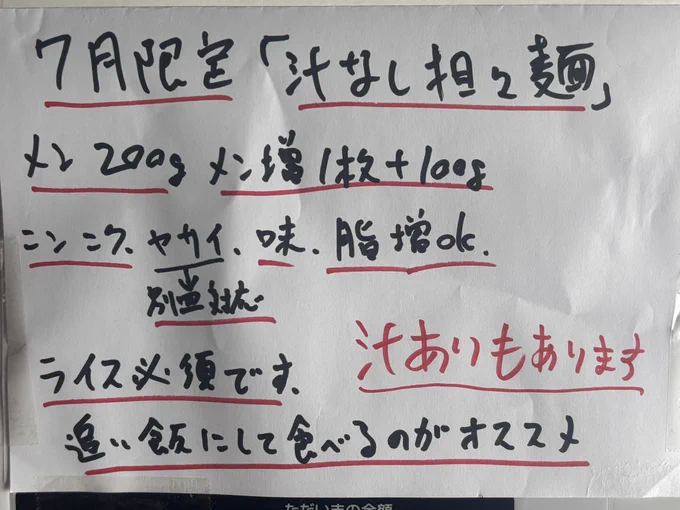 7月限定「汁なし担々麺」
メン200g メン増1枚+100g
ニンニク、ヤサイ、味、脂増ok.
別皿対応
汁ありもあります
ライス必須です.
追い飯にして食べるのがオススメ
ただいまの金額